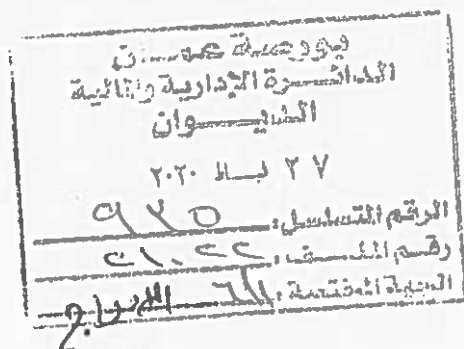 بورصة عمان
الدائرة الإدارية والمالية
الديوان
٢٧ شباط ٢٠٢٠
الرقم المتسلسل: ٩٢٥
رقم الملف: ٢١٠٢٢
الجهة المختصة: